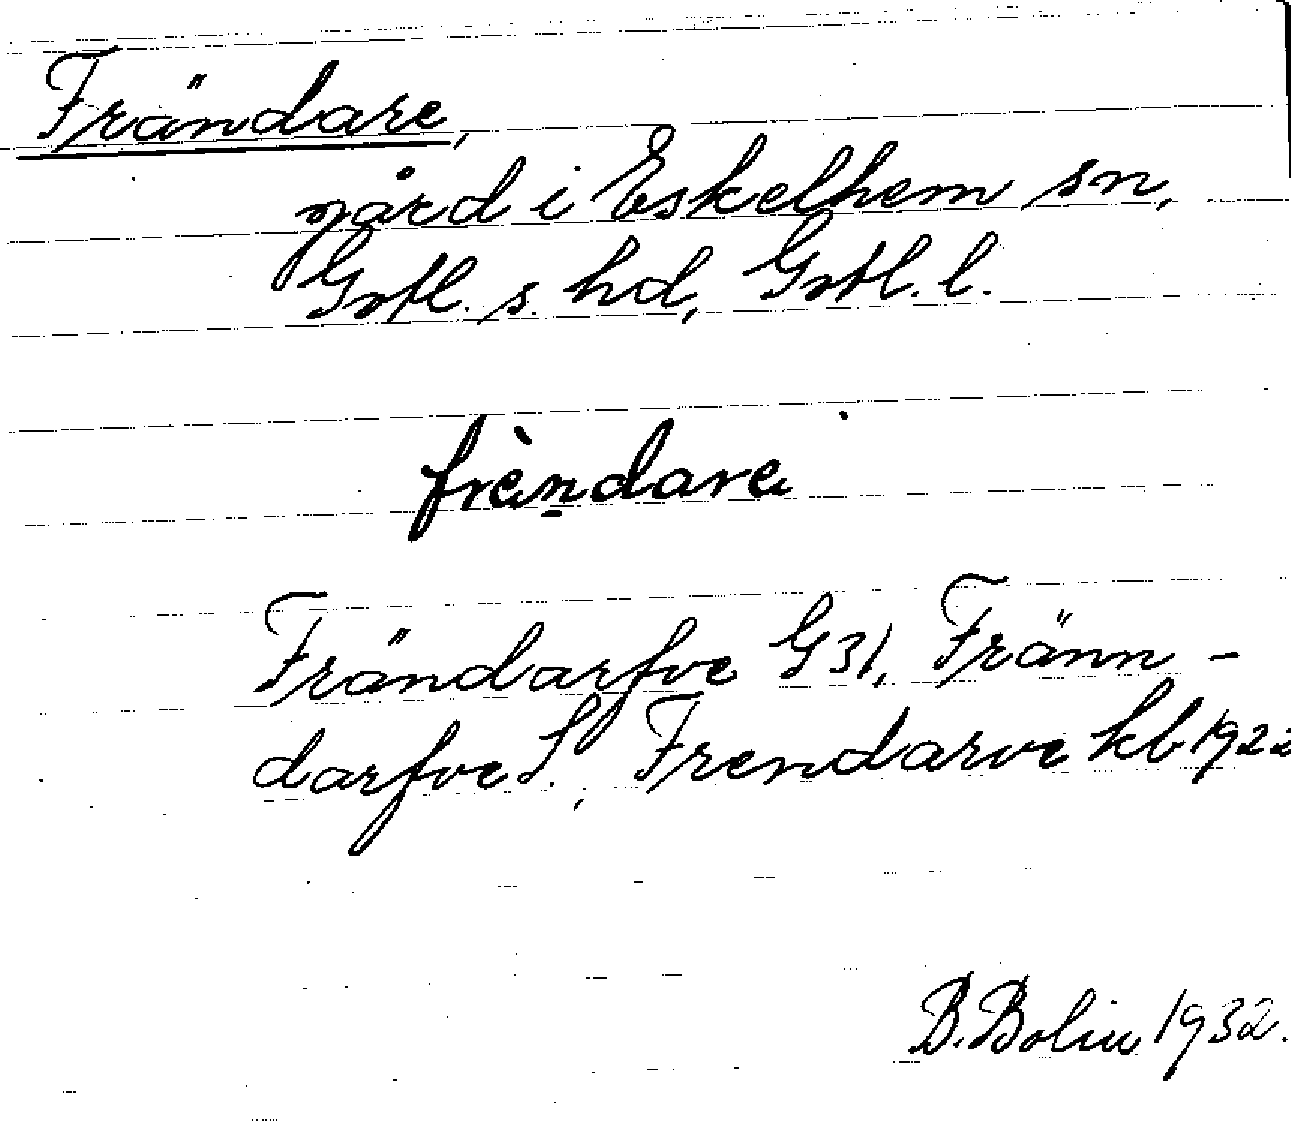 Frändare,
gård i Eskelhem sn,
Gotl. s. hd, Gotl. l.
frè̀ndare
Frändarfve G31, Fränn-
darfve S., Frendarve kb 1922
B. Bolin 1932.